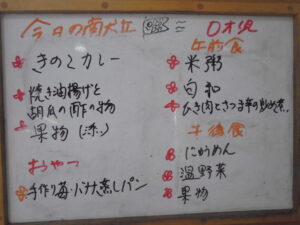 今日の献立
きのこカレー
焼き油揚げと
胡瓜の酢の物
果物（凍）
おやつ
手作り苺・バナナ蒸しパン
0才児
午前食
米粥
ひき肉とさつま芋の炒め煮
午後食
にゅうめん
温野菜
果物